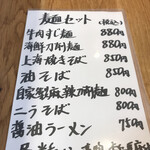 麺セット (税込)
牛肉すじ麺 880円
海鮮刀削麺 880円
上海焼きそば 850円
油そば 850円
自家製麻辣刀削麺 800円
ニラそば 800円
醤油ラーメン 750円